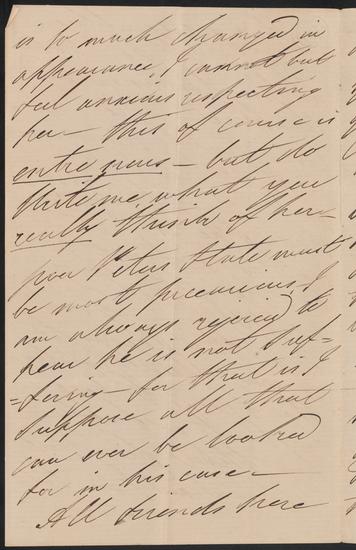 is so much changed in
appearance, I cannot but
feel anxious respecting
her — this of course is
entre nous — but do
write me what you
really think of her —
poor Peters state must
be most precarious, I
am always rejoiced to
hear he is not suf=
=fering — for that is I
suppose all that
can ever be looked
for in his case —
All friends here